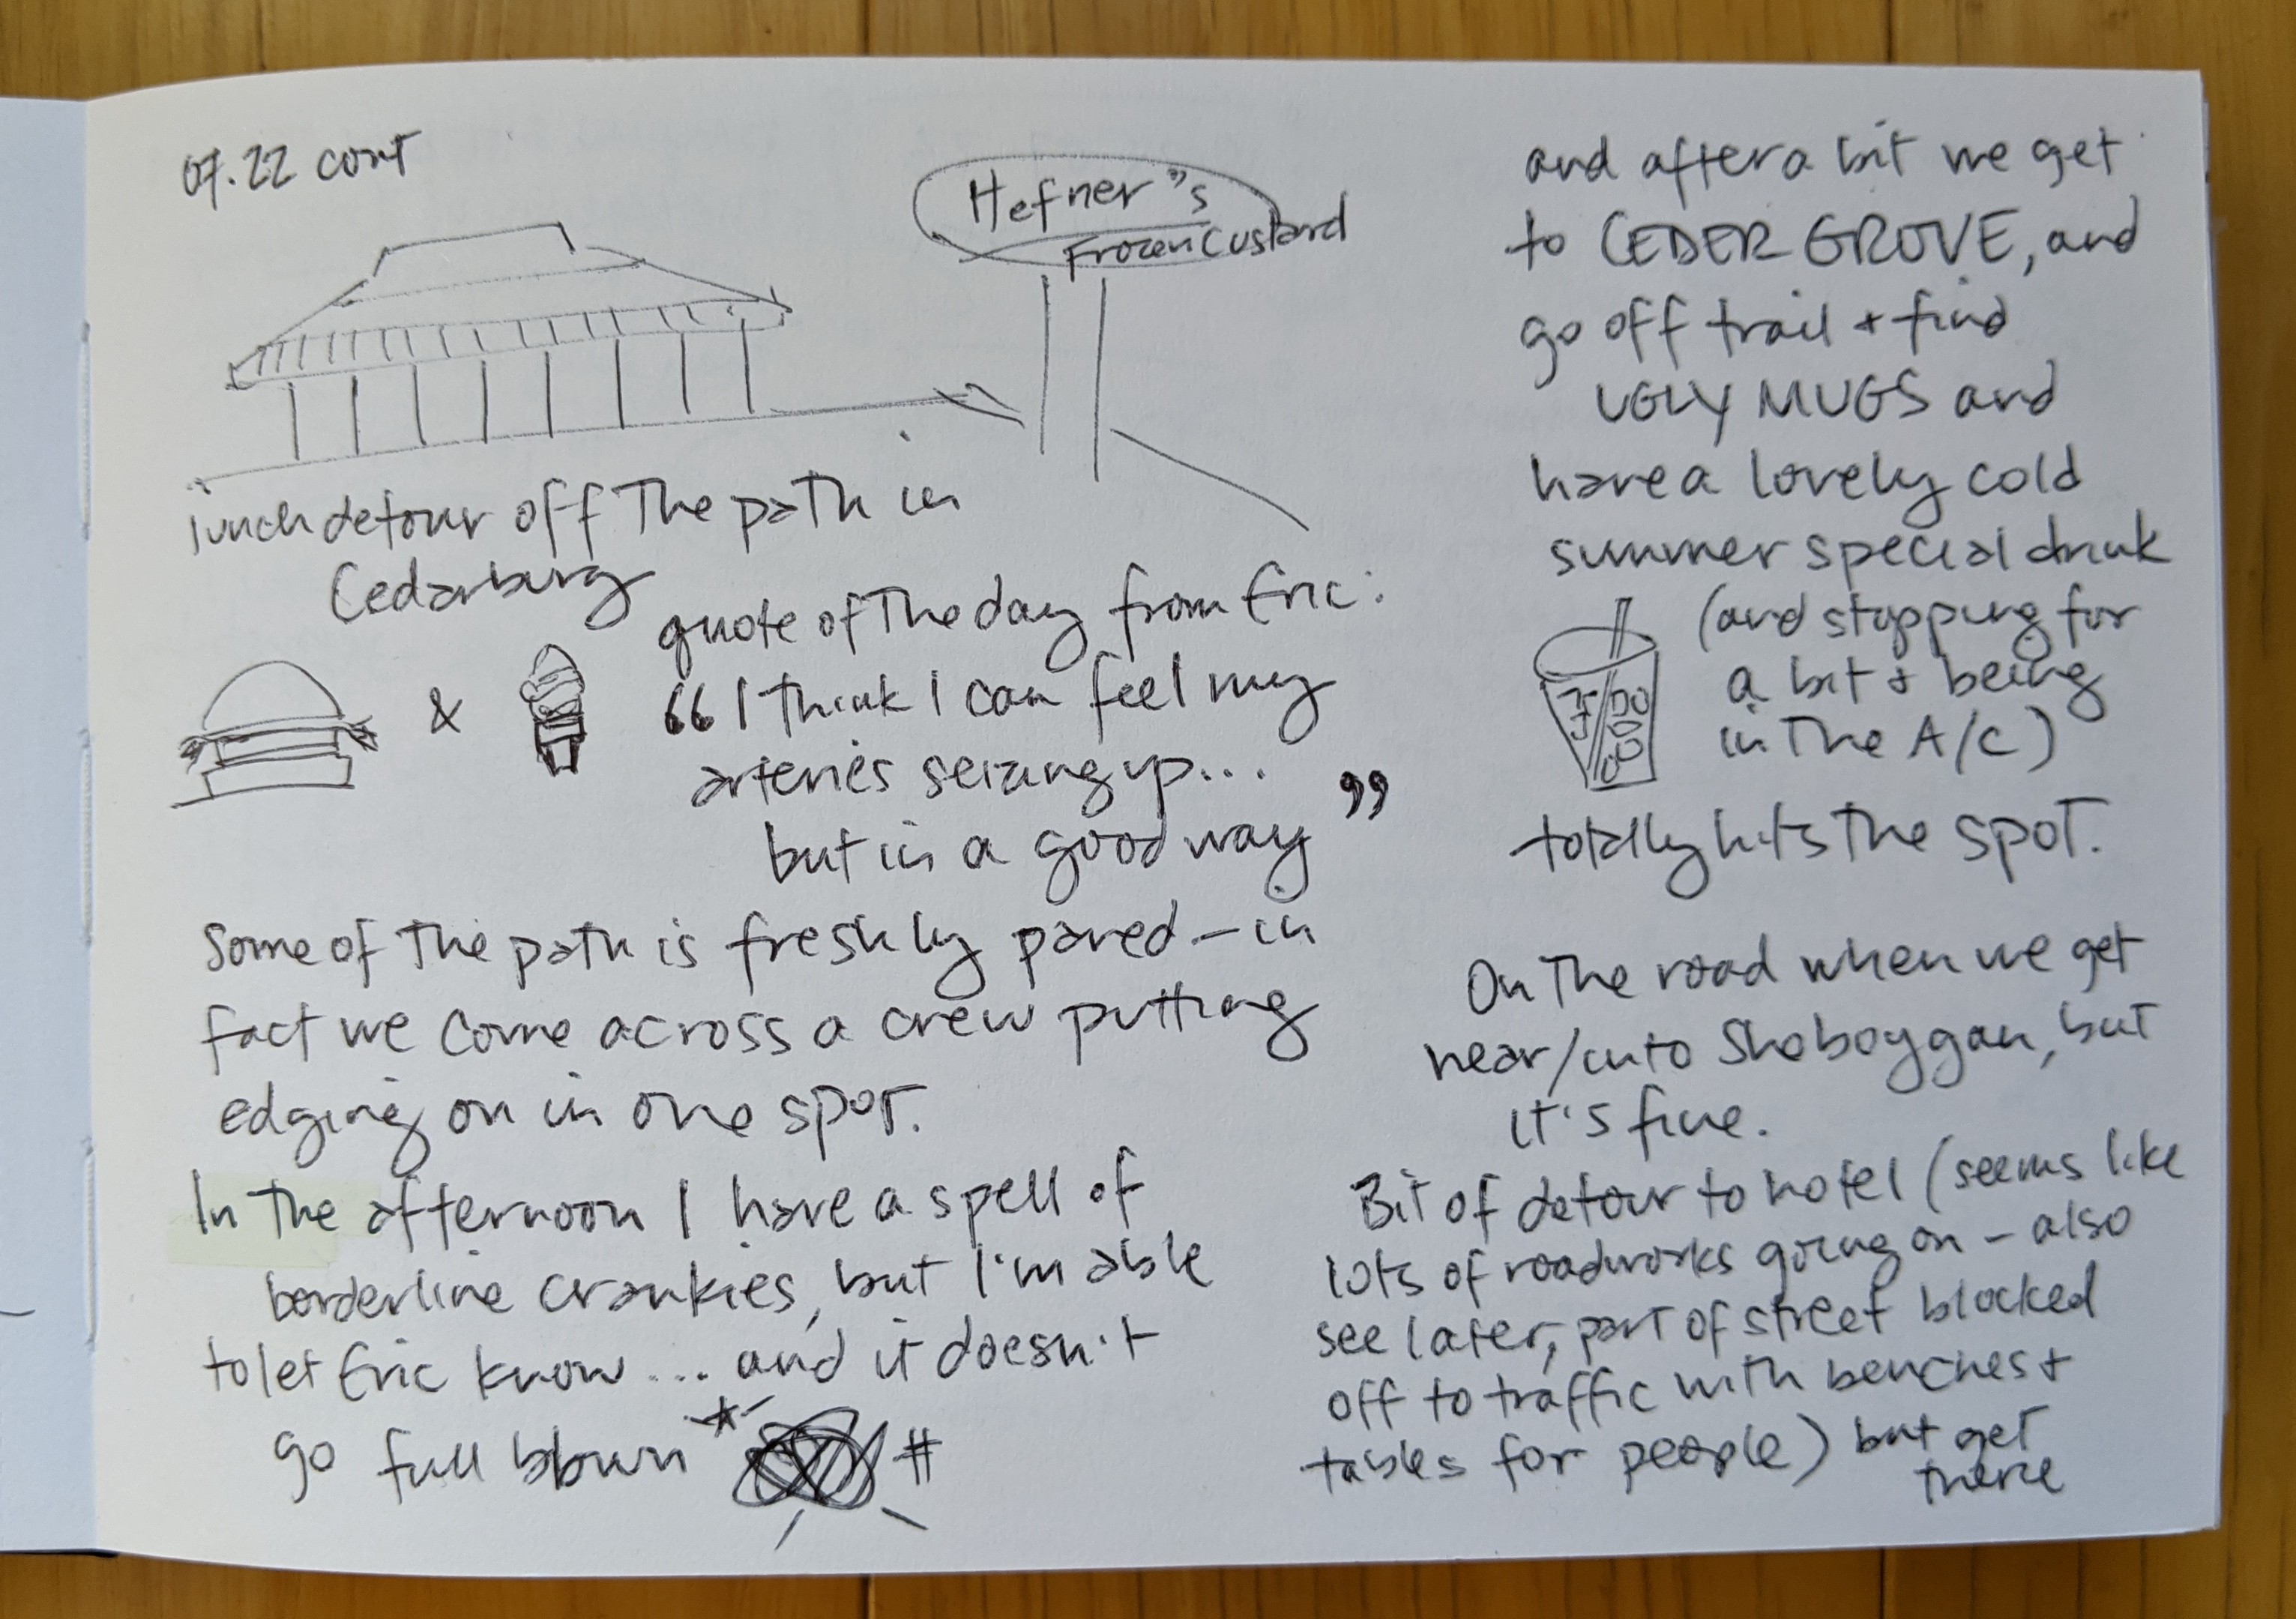 07.22 cont
Hefner's
Frozen Custard
lunch detour off the path in
Cedarburg
&
quote of the day from Eric:
"I think I can feel my
arteries seizing up...
but in a good way"
Some of the path is freshly paved - in
fact we come across a crew putting
edging on in one spot.
In the afternoon I have a spell of
borderline crankies, but I'm able
to let Eric know... and it doesn't
go full blown * #
and after a bit we get
to CEDER GROVE, and
go off trail + find
UGLY MUGS and
have a lovely cold
summer special drink
(and stopping for
a bit + being
in the A/C)
totally hits the spot.
On the road when we get
near/into Shoboygan, but
it's fine.
Bit of detour to hotel (seems like
lots of roadworks going on - also
see later, part of street blocked
off to traffic with benches +
tables for people) but get
there